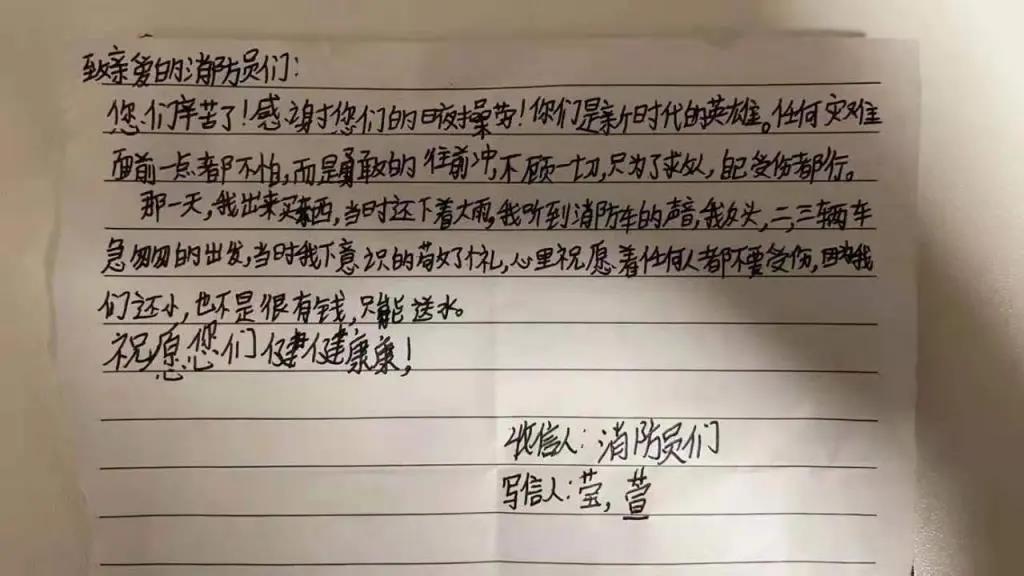 致亲爱的消防员们:
您们辛苦了!感谢您们的日夜操劳!你们是新时代的英雄。任何灾难
面前一点都不怕,而是勇敢的往前冲,不顾一切,只为了救人,自己受伤都行。
那一天,我出来买东西,当时还下着大雨,我听到消防车的声音,我回头,二,三辆车
急匆匆的出发,当时我下意识的敬了个礼,心里祝愿着任何人都不要受伤,因为我
们还小,也不是很有钱,只能送水。
祝愿您们健健康康!
收信人:消防员们
写信人:莹,萱